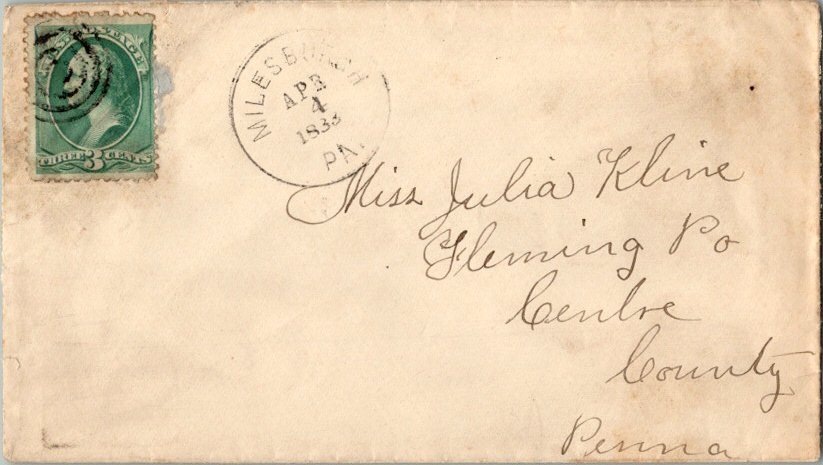 U.S. POSTAGE
THREE 3 CENTS
MILESBURGH
APR
4
1833
PA.
Miss Julia Kline
Fleming Po
Centre
County
Penna